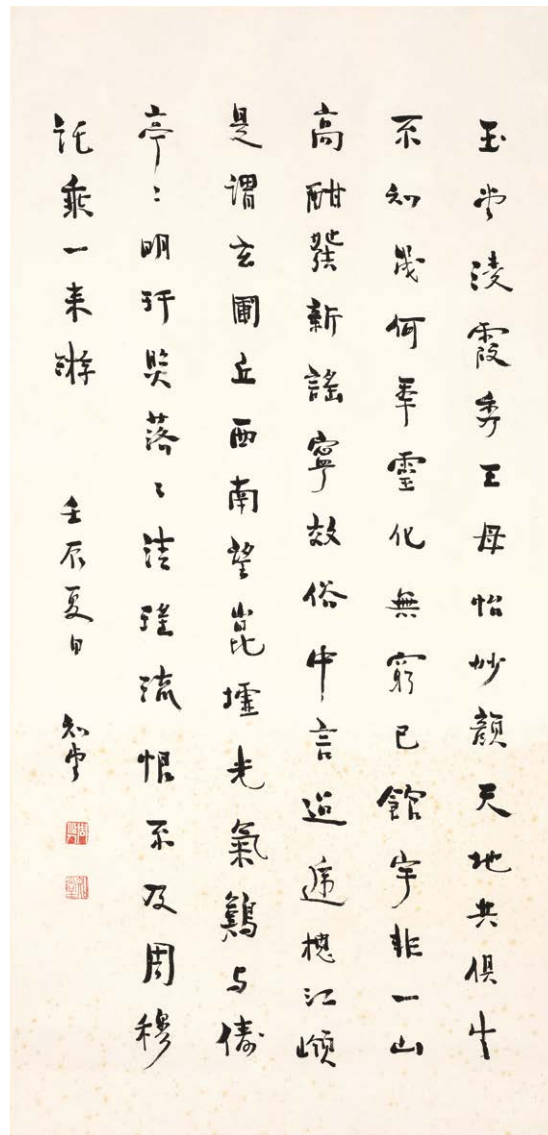 玉堂淩霞秀王母怡妙顏天地共俱生
不知幾何年靈化無窮已館宇非一山
高酣發新謠寧效俗中言迢遞槐江嶺
是謂玄圃丘西南望崑墟光氣難与儔
亭〻明玕照落〻清瑤流恨不及周穆
託乘一来游 壬辰夏日 知堂